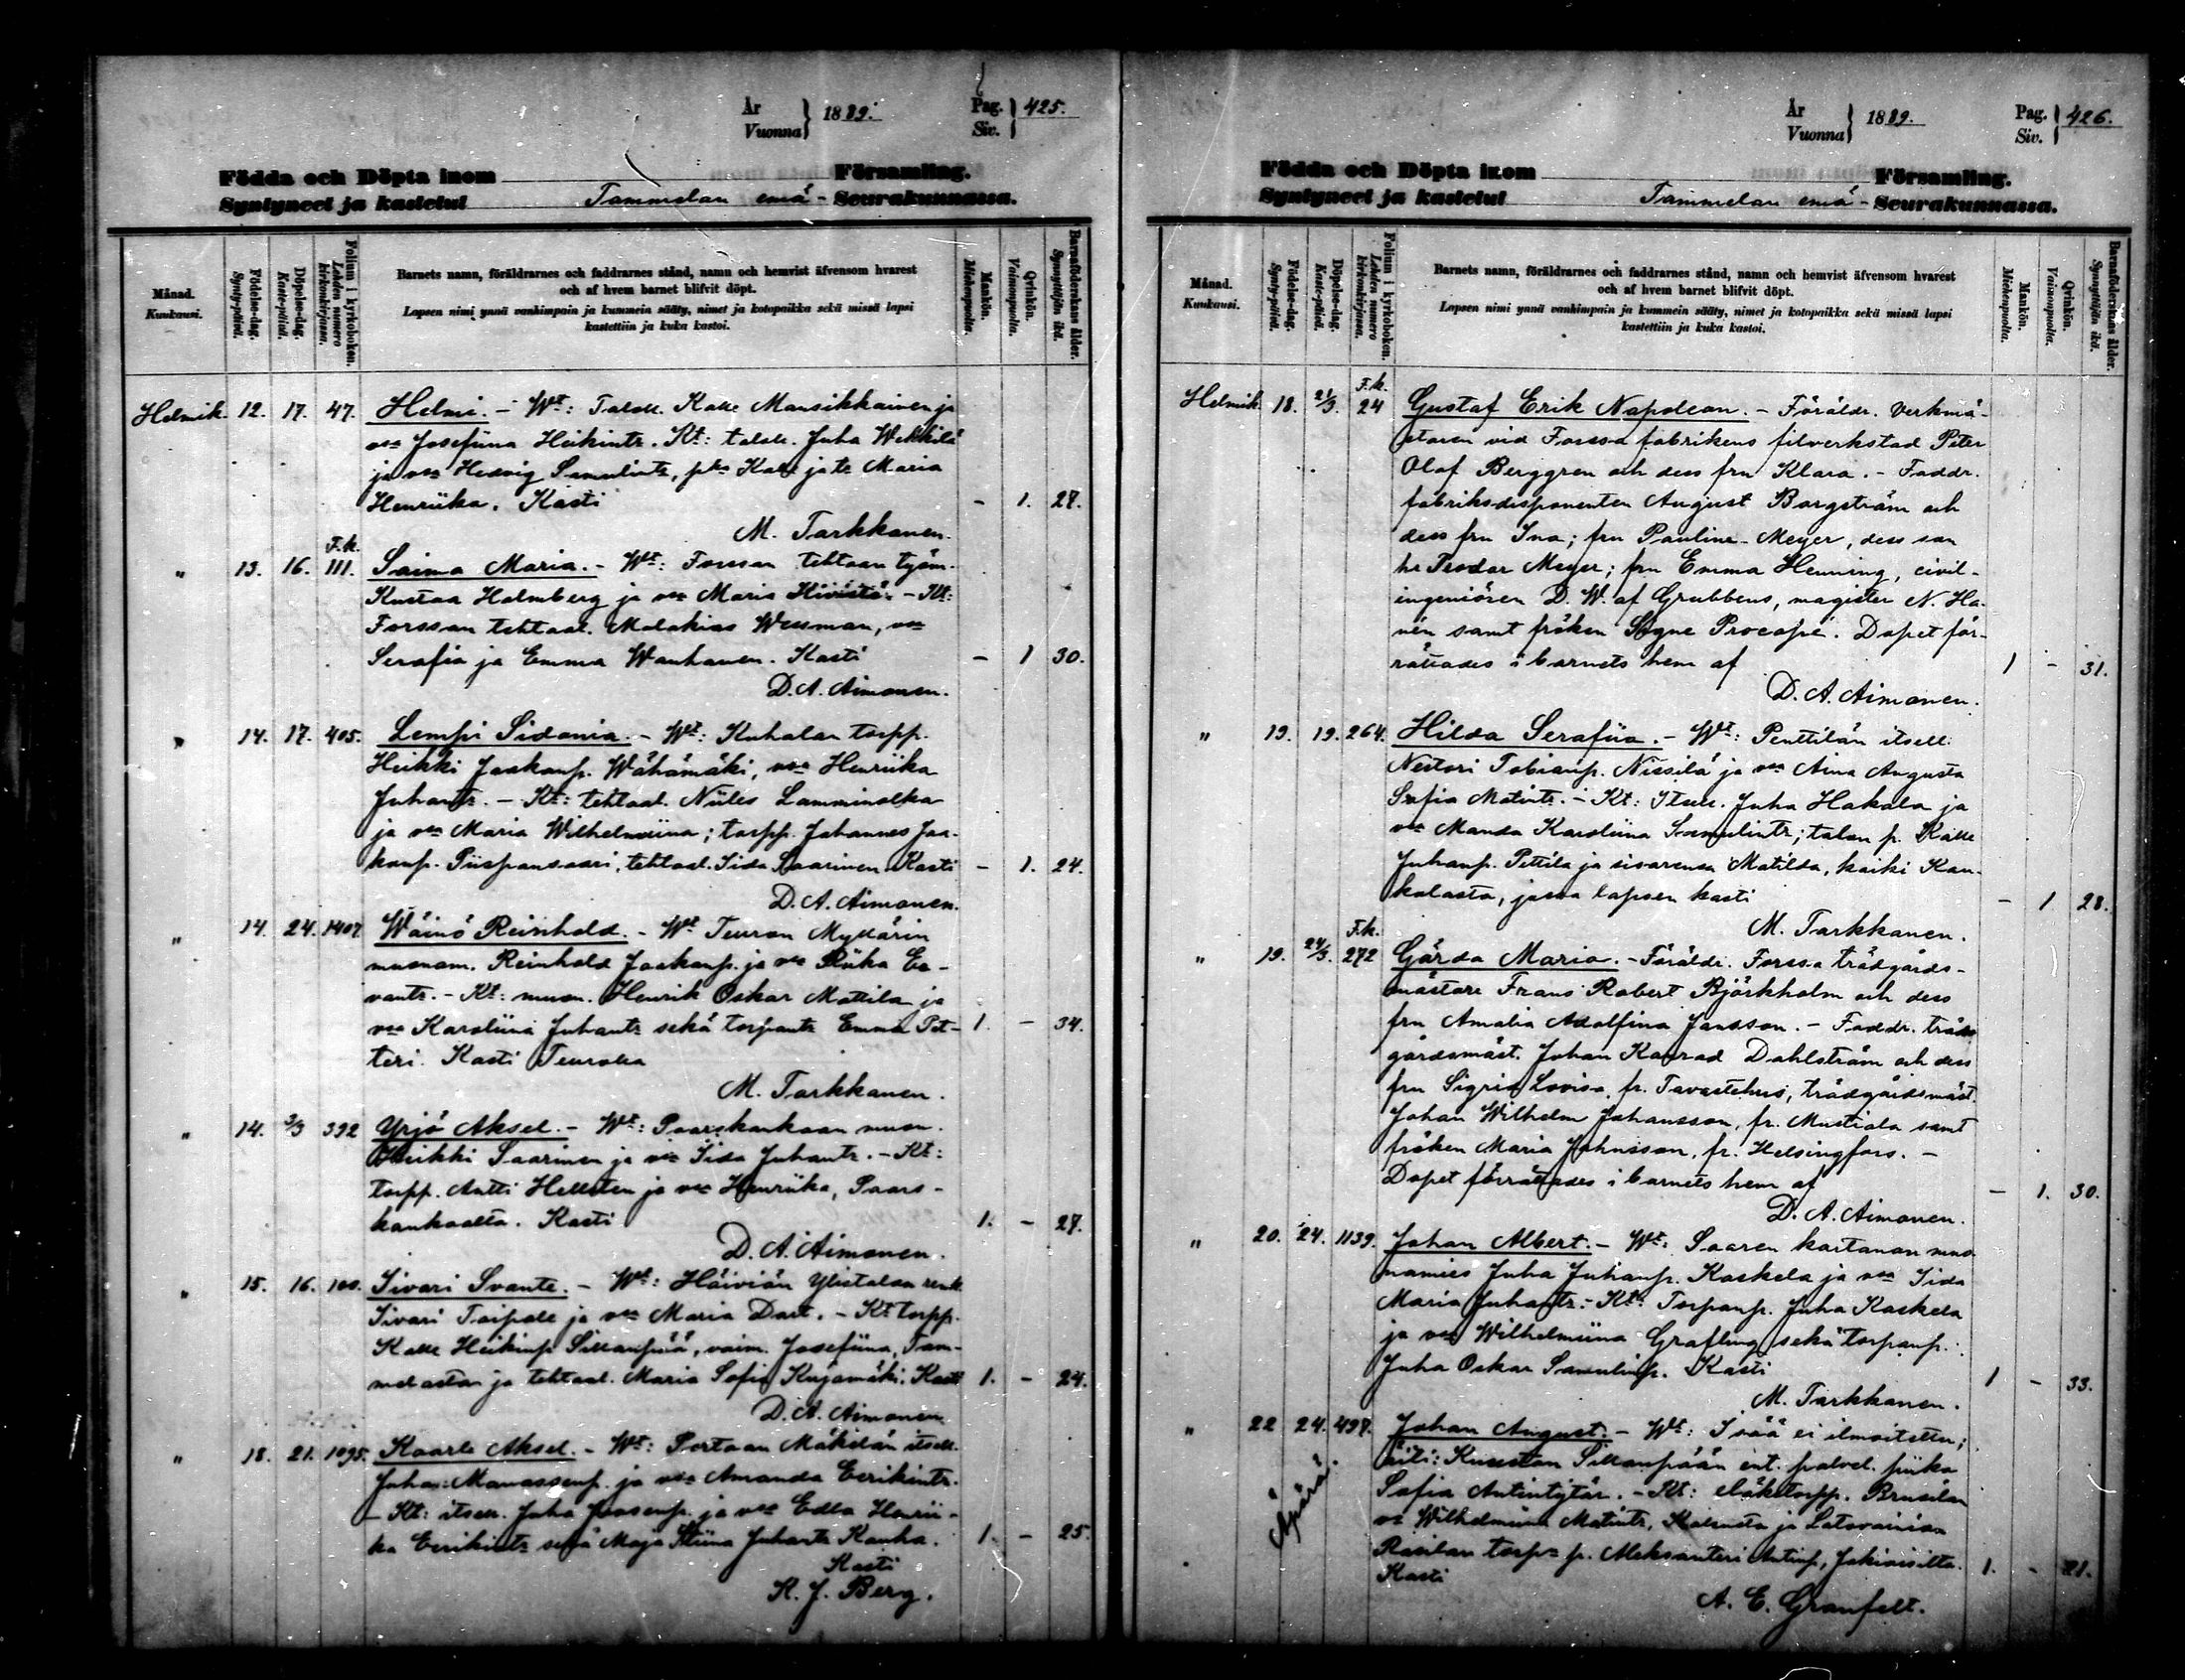 År
Vuonna } 1889.
Pag.
Siv. } 425.
Födda och Döpta inom Församling.
Syntyneet ja kastetut Tammelan emä- Seurakunnassa.
Månad.
Kuukausi.
Födelse-dag.
Synty-päivä.
Döpelse-dag.
Kaste-päivä.
Folium i kyrkoboken.
Lehden numero kirkonkirjassa.
Barnets namn, föräldrarnes och faddrarnes stånd, namn och hemvist äfvensom hvarest
och af hvem barnet blifvit döpt.
Lapsen nimi ynnä vanhimpain ja kummein sääty, nimet ja kotopaikka sekä missä lapsi
kastettiin ja kuka kastoi.
Mankön.
Miehenpuolta.
Qvinkön.
Vaimonpuolta.
Barnaföderskans ålder.
Synnyttäjän ikä.
Helmik. 12. 17. 47. Helmi. - Wt: Talok. Kalle Mansikkainen ja
vmo Josefiina Heikintr. Kt: talok. Juha Wekkilä
ja vmo Hedvig Samulintr, Kalle ja tr Maria
Henriika. Kasti - 1. 27.
M. Tarkkanen.
F.k.
" 13. 16. 111. Saima Maria. - Wt: Forssan tehtaan työm.
Kustaa Holmberg ja vmo Maria Kivistö. - Kt:
Forssan tehtaal. Malakias Wessman, vmo
Serafia ja Emma Wanhanen. Kasti - 1 30.
D. A. Aimonen.
" 14. 17. 405. Lempi Sidonia. - Wt: Kuhalan torpp.
Heikki Jaakonp. Wähämäki, vmo Henriika
Juhantr. - Kt: tehtaal. Niiles Lamminolka
ja vmo Maria Wilhelmiina; torpp. Johannes Jaa-
konp. Piispansaari, tehtaal. Iida Saarinen. Kasti - 1. 24.
D. A. Aimonen.
" 14. 24. 1407 Wäinö Reinhold. - Wt Teuron Myllärin
muonam. Reinhold Jaakonp. ja vmo Riika Ee-
vantr. - Kt: muon. Henrik Oskar Mattila ja
vmo Karoliina Juhantr sekä torpantr Emma Pet-
teri. Kasti Teurolla 1. - 34.
M. Tarkkanen.
" 14. 3/3 392 Yrjö Aksel. - Wt: Saarskankaan muon.
Heikki Saarinen ja vmo Iida Juhantr. - Kt:
torpp. Antti Hellsten ja vmo Henriika, Saars-
kankaalta. Kasti 1. - 27.
D. A. Aimonen.
" 15. 16. 100. Iivari Svante. - Wt: Häiviän Ylistalon renk
Iivari Taipale ja vmo Maria Dart. - Kt torpp.
Kalle Heikinp Sillanpää, vaim. Josefiina, Tam-
melastan ja tehtaal. Maria Sofia Kujamäki. Kasti 1. - 24.
D. A. Aimonen
" 18. 21. 1095. Kaarle Aksel. - Wt: Portaan Mäkilän itsell.
Juha Manassenp. ja vmo Amanda Eerikintr.
- Kt: itsell. Juha Joosenp. ja vmo Edla Henrii-
ka Eerikintr sekä Maja Stiina Juhantr Kanha. 1. - 25.
Kasti
K. J. Berg.
År
Vuonna } 1889.
Pag.
Siv. } 426.
Födda och Döpta inom Församling.
Syntyneet ja kastetut Tammelan emä- Seurakunnassa.
Månad.
Kuukausi.
Födelse-dag.
Synty-päivä.
Döpelse-dag.
Kaste-päivä.
Folium i kyrkoboken.
Lehden numero kirkonkirjassa.
Barnets namn, föräldrarnes och faddrarnes stånd, namn och hemvist äfvensom hvarest
och af hvem barnet blifvit döpt.
Lapsen nimi ynnä vanhimpain ja kummein sääty, nimet ja kotopaikka sekä missä lapsi
kastettiin ja kuka kastoi.
Mankön.
Miehenpuolta.
Qvinkön.
Vaimonpuolta.
Barnaföderskans ålder.
Synnyttäjän ikä.
F.k.
Helmik. 18. 2/3. 24 Gustaf Erik Napoleon. - Föräldr. Verkmä-
staren vid Forssa fabrikens filverkstad Peter
Olof Berggren och dess fru Klara. - Faddr.
fabriksdisponenten August Borgström och
dess fru Ina; fru Pauline Meyer, dess son
hr Teodor Meyer; fru Emma Henning, civil-
ingeniören D. W. af Grubbens, magister N. Ha-
nén samt fröken Signe Procopé. Dopet för-
rättades i barnets hem af 1 - 31.
D. A. Aimonen.
" 19. 19. 264. Hilda Serafiia. - Wt: Penttilän itsell.
Nestori Tobianp. Nissilä ja vmo Aina Augusta
Sofia Matintr. - Kt: Itsell. Juha Hakala ja
vmo Manda Karoliina Samulintr; talon p. Kalle
Juhanp. Pettila ja sisarensa Matilda, kaiki Kau-
kolasta, jossa lapsen kasti - 1 28.
M. Tarkkanen.
F.k.
" 19. 24/3. 272 Gärda Maria. - Föräldr. Forssa trädgårds-
mästare Frans Robert Björkholm och dess
fru Amalia Adolfina Jansson. - Faddr. träd-
gårdsmäst. Johan Konrad Dahlström och dess
fru Sigrid Lovisa, fr. Tavastehus, trädgårdsmäst.
Johan Wilhelm Johansson, fr. Mustiala samt
fröken Maria Johnsson, fr. Helsingfors. -
Dopet förrättades i barnets hem af - 1. 30.
D. A. Aimonen.
" 20. 24. 1139. Johan Albert. - Wt: Saaren kartanon muo
namies Juha Juhanp. Koskela ja vmo Iida
Maria Juhantr. - Kt: Torpanp. Juha Koskela
ja vmo Wilhelmiina Grafling sekä torpanp.
Juha Oskar Samulinp. Kasti 1 - 33.
M. Tarkkanen.
" 22 24. 497. Johan August. - Wt: Isää ei ilmoitettu;
Äpärä. äiti: Kuuston Sillanpään ent. palvel. piika
Sofia Antintytär. - Kt: eläketorpp. Brusilan
vo Wilhelmiina Matintr, ja
Rasilan torpn p. Aleksanteri Antinp, Jokioisilta. 1. - 21.
Kasti
A. E. Granfelt.